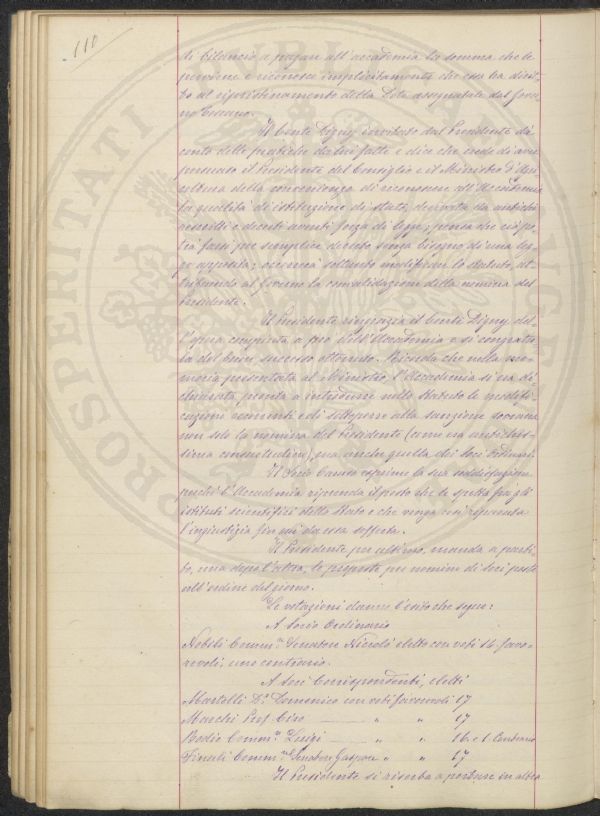 110
di bilancio a pagare all'accademia la somma che le
perviene e riconosce implicitamente che essa ha dirit-
to al ripristinamento della Dote assegnatale dal Gover-
no Toscano.
Il Conte Digny invitato dal Presidente dà
conto delle pratiche da lui fatte e dice che crede di aver
persuaso il Presidente del Consiglio e il Ministro d'Agri-
coltura della convenienza di riconoscere all'Accademia
la qualità di istituzione di Stato, derivata da antichi
rescritti e decreti aventi forza di legge; pensa che ciò po-
trà farsi per semplice decreto senza bisogno di una leg-
ge apposita; occorrerà soltanto modificare lo Statuto, at-
tribuendo al Governo la convalidazione della nomina del
Presidente.
Il Presidente ringrazia il Conte Digny del-
l'opera compiuta a pro dell'Accademia e si congratu-
la del buon successo ottenuto. Ricorda che nella me-
moria presentata al Ministro, l'Accademia si era di-
chiarata pronta a introdurre nello Statuto le modifi-
cazioni occorrenti e di sottoporre alla sanzione sovrana
non solo la nomina del Presidente (come era antichis-
sima consuetudine), ma anche quella dei Soci Ordinari.
Il Socio Caruso esprime la sua soddisfazione
perchè l'Accademia riprenda il posto che le spetta fra gli
istituti scientifici dello Stato e che venga così riparata
l'ingiustizia fin qui da essa sofferta.
Il Presidente per ultimo, manda a parti-
to, una dopo l'altra, le proposte per nomine di Soci poste
all'ordine del giorno.
Le votazioni danno l'esito che segue:
A Socio Ordinario
Nobili Comm.re Senatore Niccolò eletto con voti 14 favo-
revoli, uno contrario.
A Soci Corrispondenti, eletti
Martelli Dr. Domenico con voti favorevoli 17
Marchi Prof. Ciro — " " 17
Bodio Comm.re Luigi — " " 16 e 1 Contrario
Finali Comm.re Senatore Gaspare " " 17
Il Presidente si riserba a portare in altra
PROSPERITATI PUBLICAE AUGENDAE